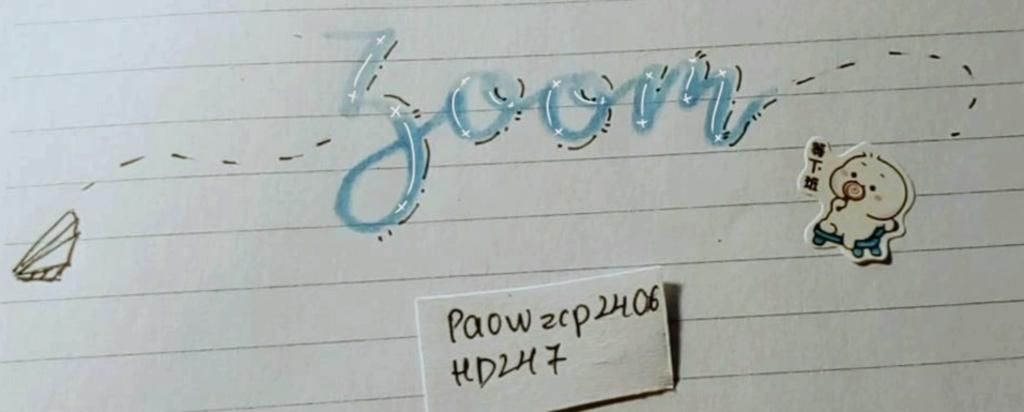 Zoom
等下班
Paowzcp2406
HD247